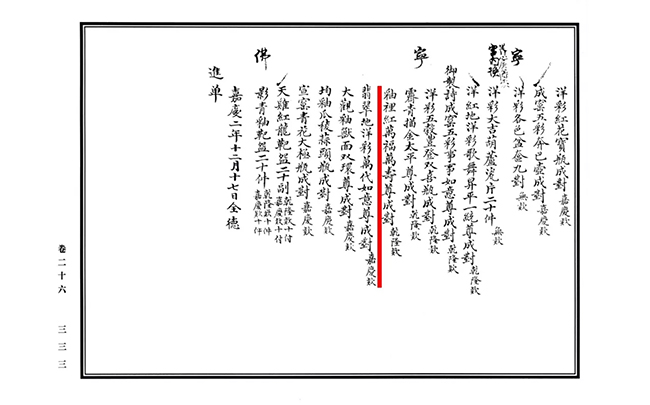 洋彩紅花寶瓶成對 嘉慶款
成窯五彩奔巴壺成對 嘉慶款
寧
洋彩各色九對 無款
洋彩大吉葫蘆瓷片二十件 無款
洋紅地洋彩歌舞昇平一統尊成對 乾隆款
御製詩成窯五彩事事如意尊成對 乾隆款
洋彩五穀豐登双喜瓶成對 乾隆款
寧
霽青描金太平尊成對 乾隆款
釉裡紅萬福萬壽尊成對 乾隆款
翡翠地洋彩萬代如意尊成對 嘉慶款
大觀釉獸面双環尊成對 嘉慶款
均釉瓜稜蒜頭瓶成對 嘉慶款
宣窯青花太極瓶成對 嘉慶款
天雞紅龍靶盌二十副 乾隆款十付 嘉慶款十付
佛
影青釉靶盌二十件 乾隆款十件 嘉慶款十件
嘉慶二年十二月十七日全德
進單
卷二十六 三三三